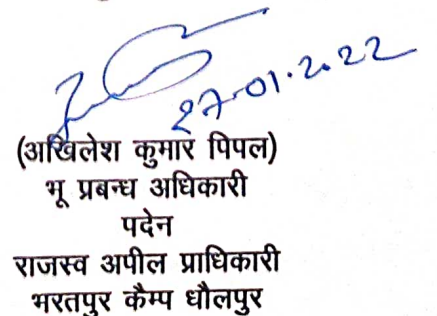 27-01-2022
(अखिलेश कुमार पिपल)
भू प्रबन्ध अधिकारी
पदेन
राजस्व अपील प्राधिकारी
भरतपुर कैम्प धौलपुर